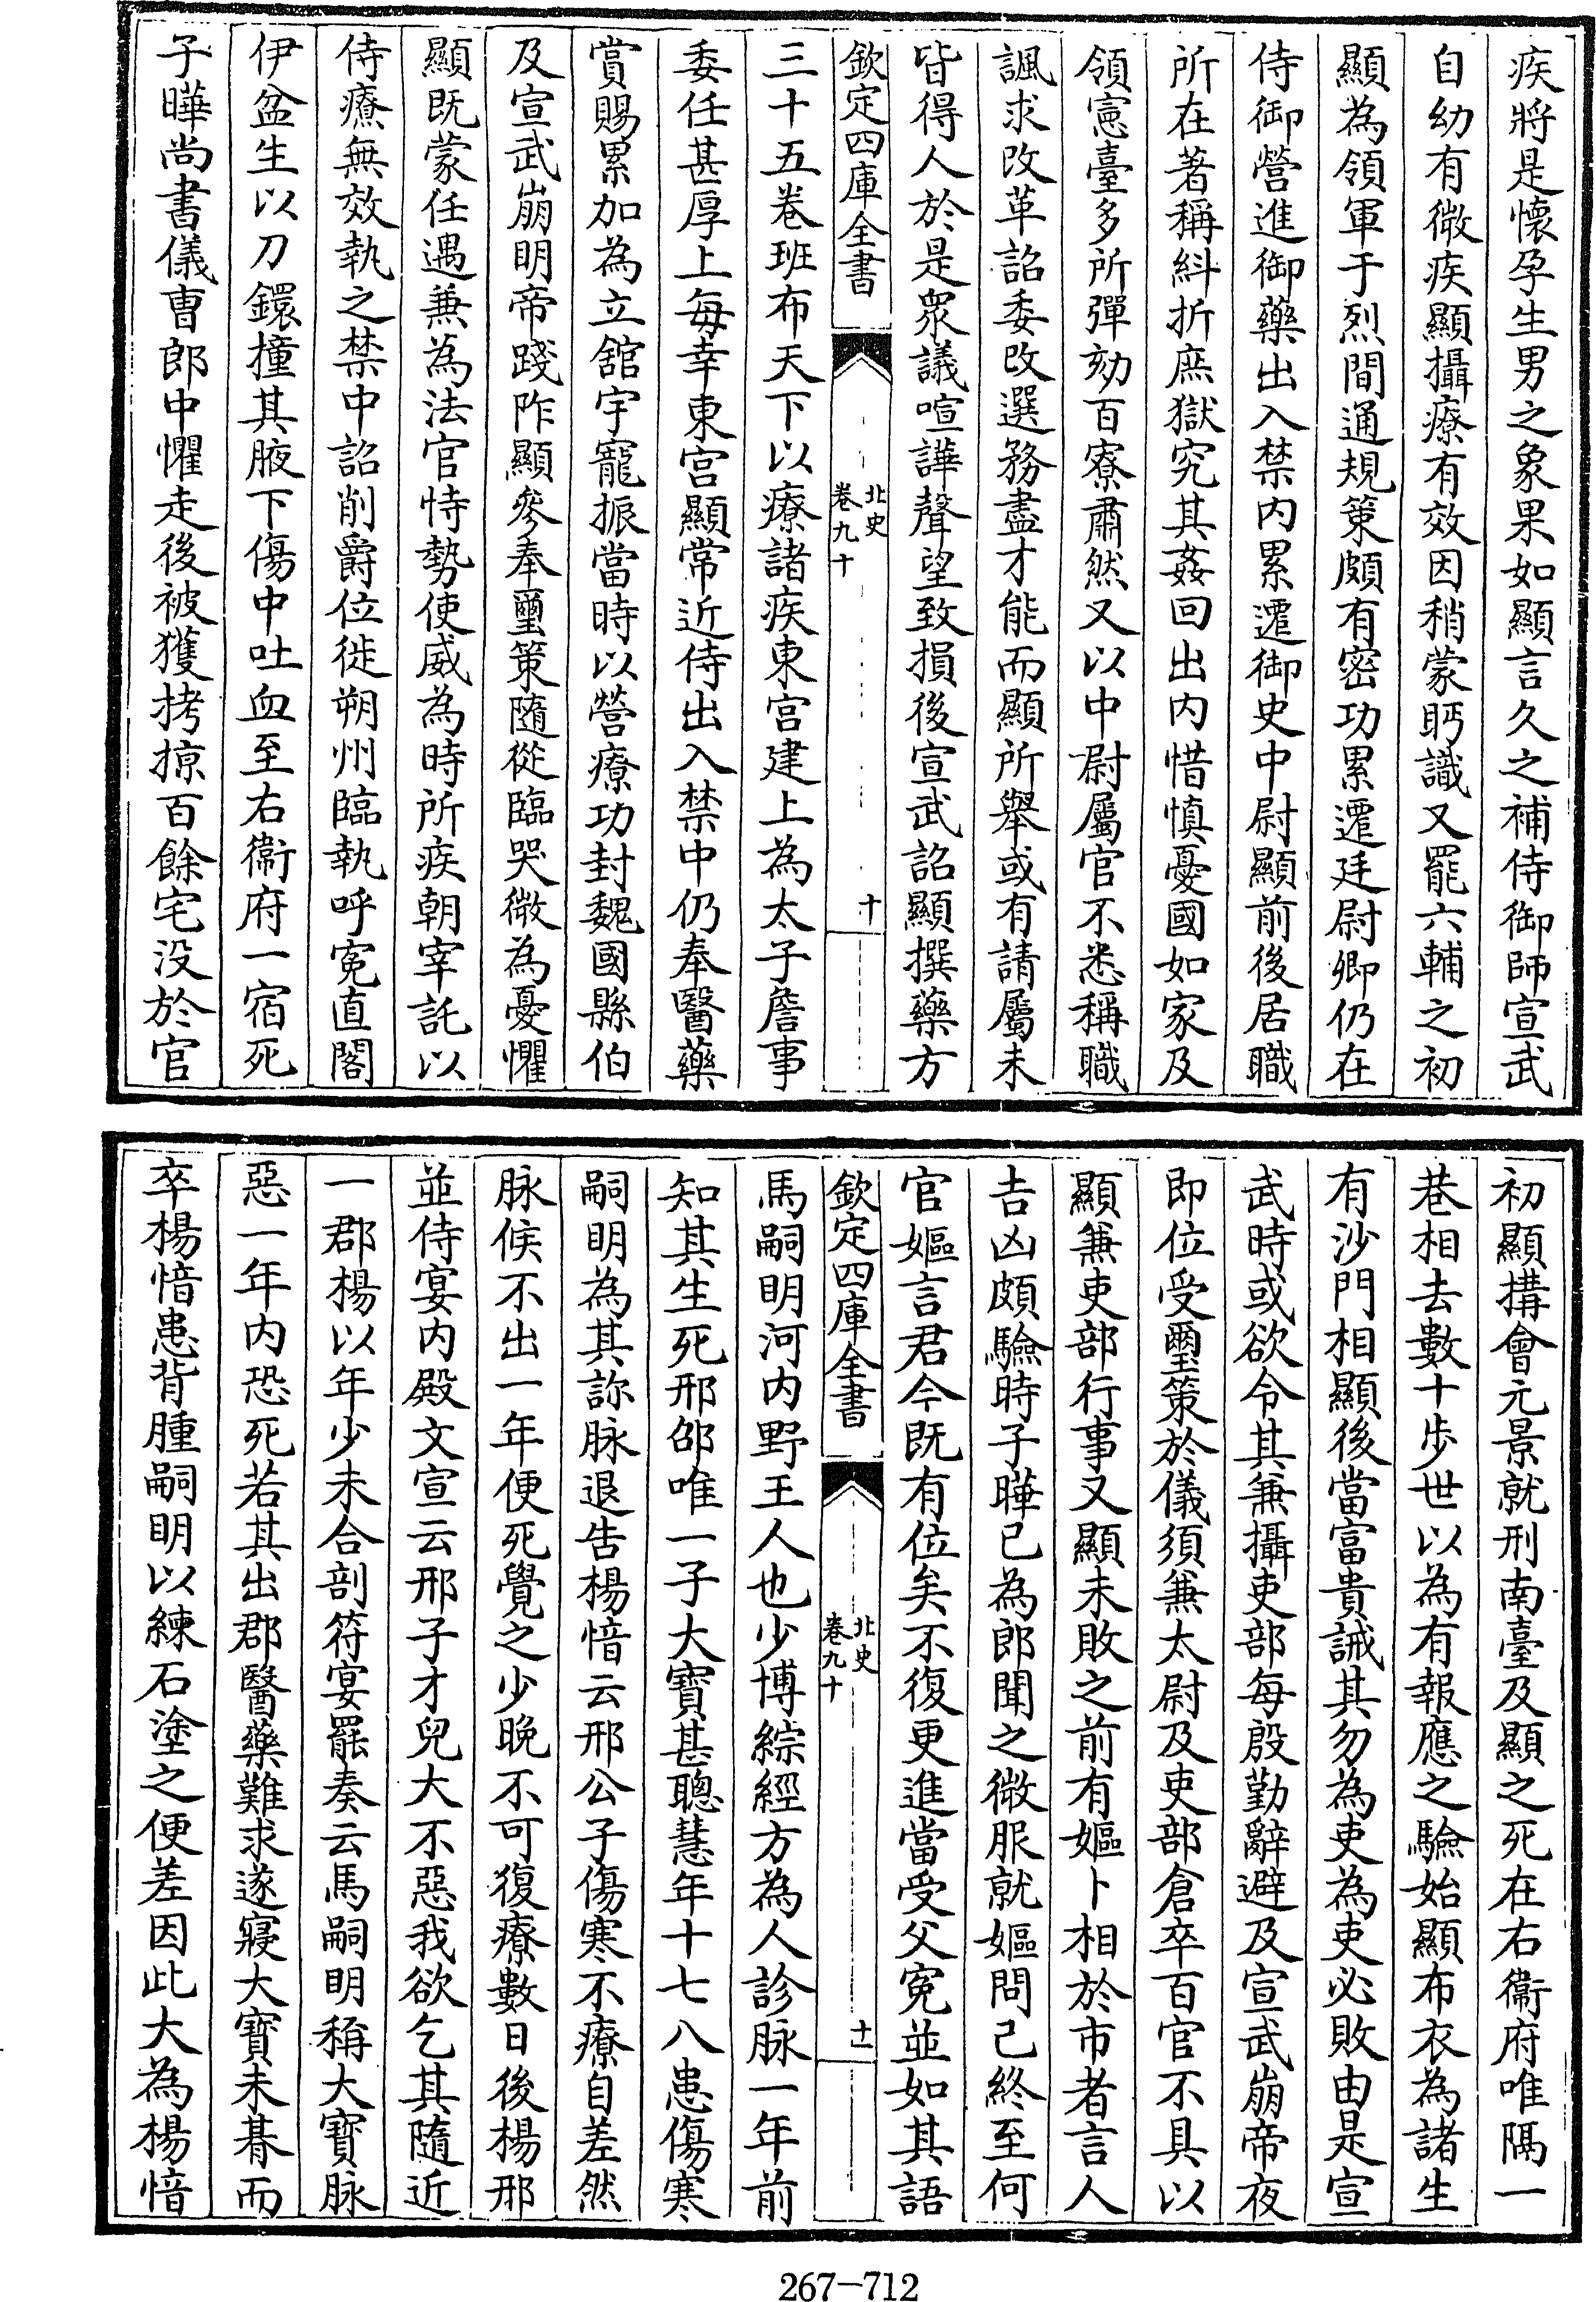 疾將是懷孕生男之象果如顯言久之補侍御師宣武
自幼有微疾顯攝療有效因稍蒙眄識又罷六輔之初
顯為領軍于烈間通規策頗有密功累遷廷尉卿仍在
侍御營進御藥出入禁内累遷御史中尉顯前後居職
所在著稱糾折庶獄究其姦回出内惜慎憂國如家及
領憲臺多所彈劾百寮肅然又以中尉屬官不悉稱職
諷求改革詔委改選務盡才能而顯所舉或有請屬未
皆得人於是衆議喧譁聲望致損後宣武詔顯撰藥方
欽定四庫全書
北史
卷九十
十
三十五卷班布天下以療諸疾東宫建上為太子詹事
委任甚厚上每幸東宫顯常近侍出入禁中仍奉醫藥
賞賜累加為立舘宇寵振當時以營療功封魏國縣伯
及宣武崩明帝踐阼顯參奉璽策隨從臨哭微為憂懼
顯既蒙任遇兼為法官恃勢使威為時所疾朝宰託以
侍療無效執之禁中詔削爵位徙朔州臨執呼寃直閣
伊盆生以刀鐶撞其腋下傷中吐血至右衞府一宿死
子曄尚書儀曹郎中懼走後被獲拷掠百餘宅没於官
初顯搆會元景就刑南臺及顯之死在右衞府唯隅一
巷相去數十步世以為有報應之驗始顯布衣為諸生
有沙門相顯後當富貴誡其勿為吏為吏必敗由是宣
武時或欲令其兼攝吏部每殷勤辭避及宣武崩帝夜
即位受璽策於儀須兼太尉及吏部倉卒百官不具以
顯兼吏部行事又顯未敗之前有嫗卜相於市者言人
吉凶頗驗時子曄已為郎聞之微服就嫗問己終至何
官嫗言君今既有位矣不復更進當受父寃並如其語
欽定四庫全書
北史
卷九十
十一
馬嗣明河内野王人也少博綜經方為人診脉一年前
知其生死邢邵唯一子大寳甚聰慧年十七八患傷寒
嗣明為其診脉退告楊愔云邢公子傷寒不療自差然
脉候不出一年便死覺之少晚不可復療數日後楊邢
並侍宴内殿文宣云邢子才兒大不惡我欲乞其隨近
一郡楊以年少未合剖符宴罷奏云馬嗣明稱大寳脉
惡一年内恐死若其出郡醫藥難求遂寢大寳未朞而
卒楊愔患背腫嗣明以練石塗之便差因此大為楊愔
267-712